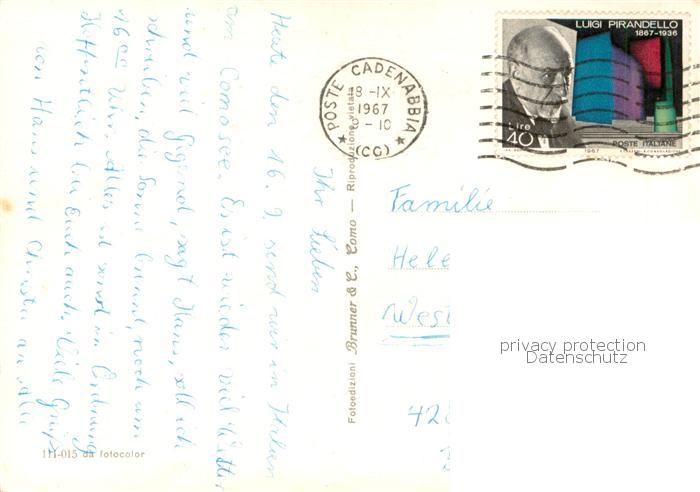 LUIGI PIRANDELLO
1867-1936
Lire
40
POSTE ITALIANE
1967
POSTE CADENABBIA
18 -IX
1967
- 10
(CO)
Ihr Lieben
Heute den 16. 9. send wir in Italien
am Comosee. Es ist wieder viel Wetter
und viel Gegend, sagt Hans, soll ich
schreiben, die Sonne brennt, noch um
16 00 Uhr. Alles ist sonst in Ordnung
Hoffentlich bei Euch auch. Viele Grüße
von Hans und Christa an Alle
Fotoedizioni Brunner & C., Como — Riproduzione vietata
Familie
Hele
West
42
privacy protection
Datenschutz
111-015 da fotocolor